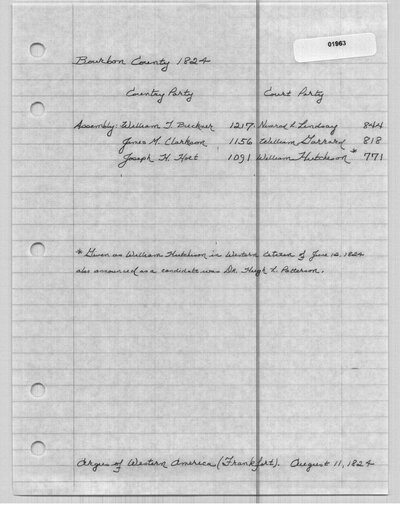 01963
Bourbon County 1824
Country Party Court Party
Assembly: William T. Buckner 1217. Nimrod L. Lindsay 844
James M. Clarkson 1156 William Garrard 818
Joseph H. Holt 1091 William Hutcheson * 771
* Given as William Hutchison in Western Citizen of June 12, 1824
also announced as a candidate was Dr. Hugh L. Patterson.
Argus of Western America (Frankfort). August 11, 1824